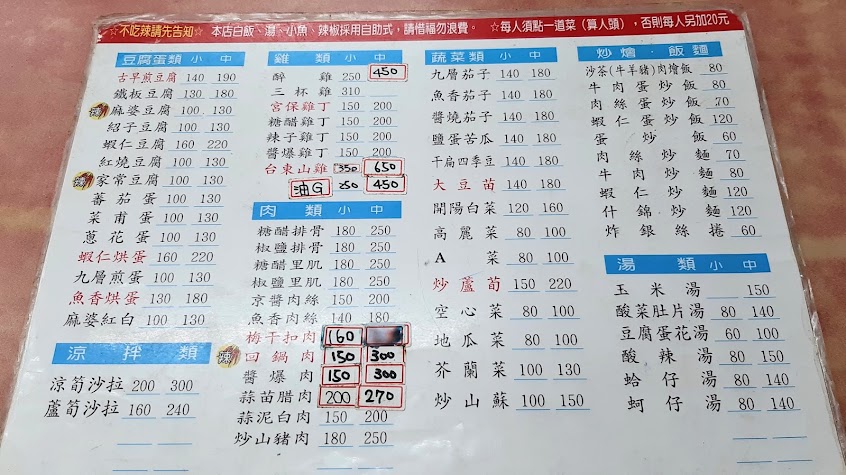 ☆不吃辣請先告知☆ 本店白飯、湯、小魚、辣椒採用自助式，請惜福勿浪費。 ☆每人須點一道菜（算人頭），否則每人另加20元
豆腐蛋類 小 中
古早煎豆腐 140 190
鐵板豆腐 130 180
麻婆豆腐 100 130
紹子豆腐 100 130
蝦仁豆腐 160 220
紅燒豆腐 100 130
家常豆腐 100 130
蕃茄蛋 100 130
菜甫蛋 100 130
蔥花蛋 100 130
蝦仁烘蛋 160 220
九層煎蛋 100 130
魚香烘蛋 130 180
麻婆紅白 100 130
涼拌類
涼筍沙拉 200 300
蘆筍沙拉 160 240
雞類 小 中
醉雞 250 450
三杯雞 310
宮保雞丁 150 200
糖醋雞丁 150 200
辣子雞丁 150 200
醬爆雞丁 150 200
台東山雞 350 650
油G 250 450
肉類 小 中
糖醋排骨 180 250
椒鹽排骨 180 250
糖醋里肌 180 250
椒鹽里肌 180 250
京醬肉絲 150 200
魚香肉絲 140 180
梅干扣肉 160
辣 回鍋肉 150 300
醬爆肉 150 300
蒜苗腊肉 200 270
蒜泥白肉 150 200
炒山豬肉 180 250
蔬菜類 小 中
九層茄子 140 180
魚香茄子 140 180
醬燒茄子 140 180
鹽蛋苦瓜 140 180
干扁四季豆 140 180
大豆苗 140 180
開陽白菜 120 160
高麗菜 80 100
A菜 80 100
炒蘆荀 150 220
空心菜 80 100
地瓜菜 80 100
芥蘭菜 100 130
炒山蘇 100 150
炒燴・飯麵
沙茶(牛羊豬)肉燴飯 80
牛肉蛋炒飯 80
肉絲蛋炒飯 70
蝦仁蛋炒飯 120
蛋炒飯 60
肉絲炒麵 70
牛肉炒麵 80
蝦仁炒麵 120
什錦炒麵 120
炸銀絲捲 60
湯類 小 中
玉米湯 150
酸菜肚片湯 80 140
豆腐蛋花湯 60 100
酸辣湯 80 150
蛤仔湯 80 140
蚵仔湯 80 140